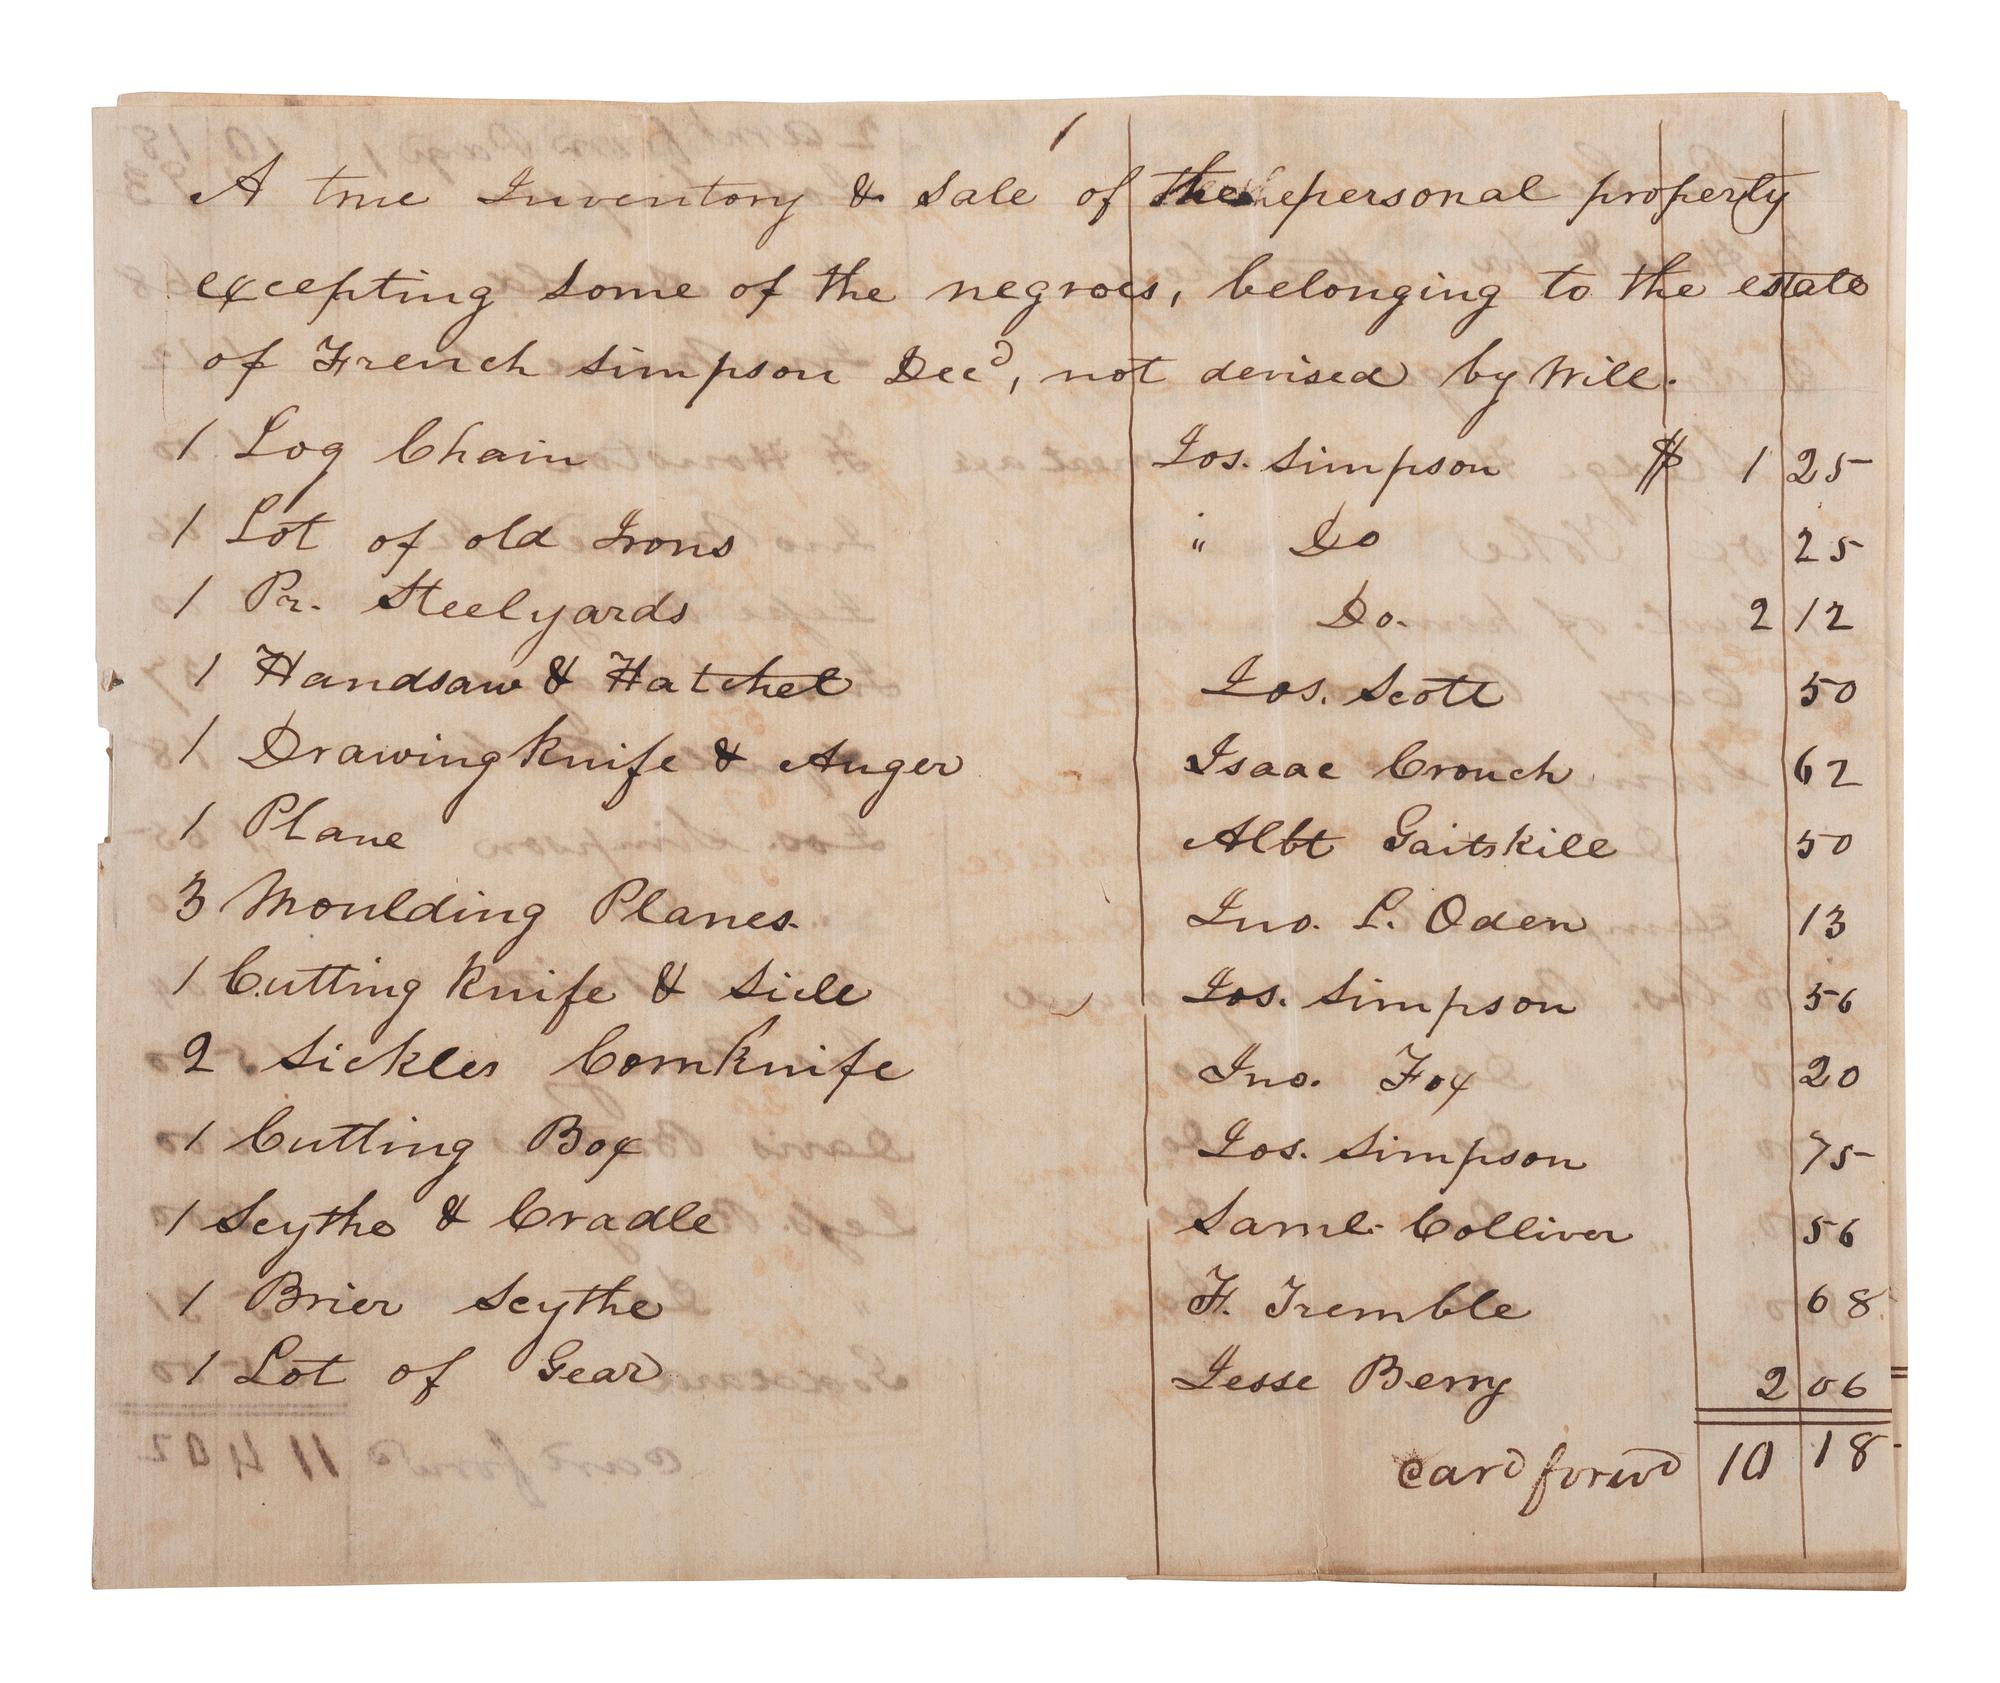 1
A true Inventory & Sale of the personal property
excepting some of the negroes, belonging to the estate
of French Simpson Decd, not devised by Will.
1 Log Chain Jos. Simpson $ 1 25
1 Lot of old Irons " Do 25
1 Pr. Steelyards Do. 2 12
1 Handsaw & Hatchet Jos. Scott 50
1 Drawing knife & Auger Isaac Crouch 62
1 Plane Albt Gaitskill 50
3 Moulding Planes. Jno. L. Oden 13
1 Cutting knife & Sick Jos. Simpson 56
2 Sickles Cornknife Jno. Fox 20
1 Cutting Box Jos. Simpson 75
1 Scythe & Cradle Saml. Colliver 56
1 Brier Scythe F. Tremble 68
1 Lot of Gear Jesse Berry 2 06
card forwd 10 18